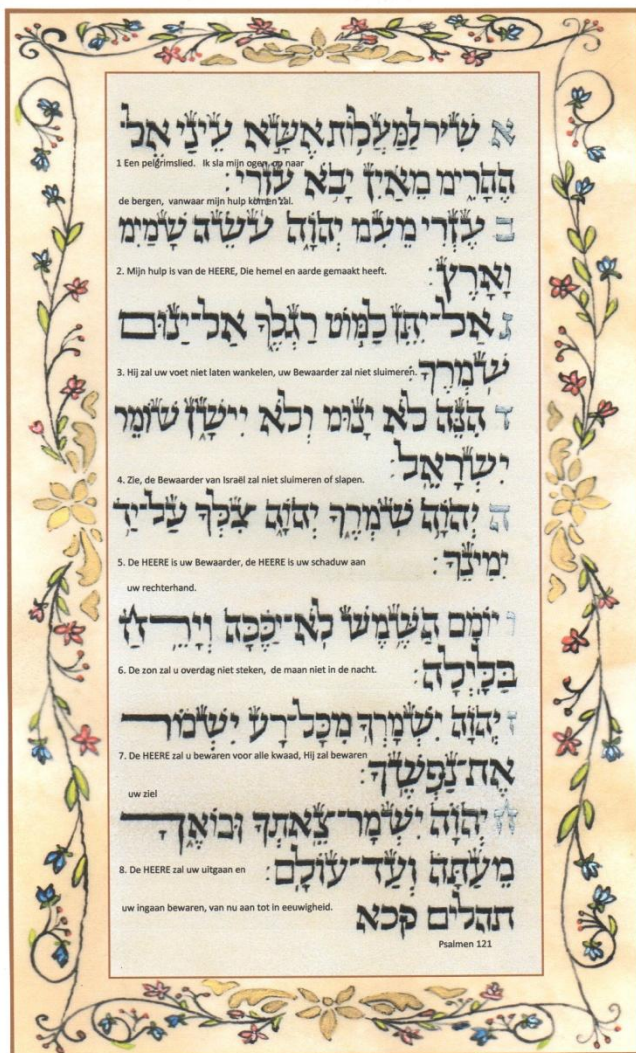 א שִׁיר לַמַּעֲלוֹת אֶשָּׂא עֵינַי אֶל־
1 Een pelgrimslied. Ik sla mijn ogen op naar
הֶהָרִים מֵאַיִן יָבֹא עֶזְרִי:
de bergen, vanwaar mijn hulp komen zal.
ב עֶזְרִי מֵעִם יְהוָה עֹשֵׂה שָׁמַיִם
וָאָרֶץ:
2. Mijn hulp is van de HEERE, Die hemel en aarde gemaakt heeft.
ג אַל־יִתֵּן לַמּוֹט רַגְלֶךָ אַל־יָנוּם
שֹׁמְרֶךָ:
3. Hij zal uw voet niet laten wankelen, uw Bewaarder zal niet sluimeren.
ד הִנֵּה לֹא יָנוּם וְלֹא יִישָׁן שׁוֹמֵר
יִשְׂרָאֵל:
4. Zie, de Bewaarder van Israël zal niet sluimeren of slapen.
ה יְהוָה שֹׁמְרֶךָ יְהוָה צִלְּךָ עַל־יַד
יְמִינֶךָ:
5. De HEERE is uw Bewaarder, de HEERE is uw schaduw aan
uw rechterhand.
ו יוֹמָם הַשֶּׁמֶשׁ לֹא־יַכֶּכָּה וְיָרֵחַ
בַּלָּיְלָה:
6. De zon zal u overdag niet steken, de maan niet in de nacht.
ז יְהוָה יִשְׁמָרְךָ מִכָּל־רָע יִשְׁמֹר
אֶת־נַפְשֶׁךָ:
7. De HEERE zal u bewaren voor alle kwaad, Hij zal bewaren
uw ziel
ח יְהוָה יִשְׁמָר־צֵאתְךָ וּבוֹאֶךָ
מֵעַתָּה וְעַד־עוֹלָם:
8. De HEERE zal uw uitgaan en
uw ingaan bewaren, van nu aan tot in eeuwigheid.
תהלים קכא
Psalmen 121